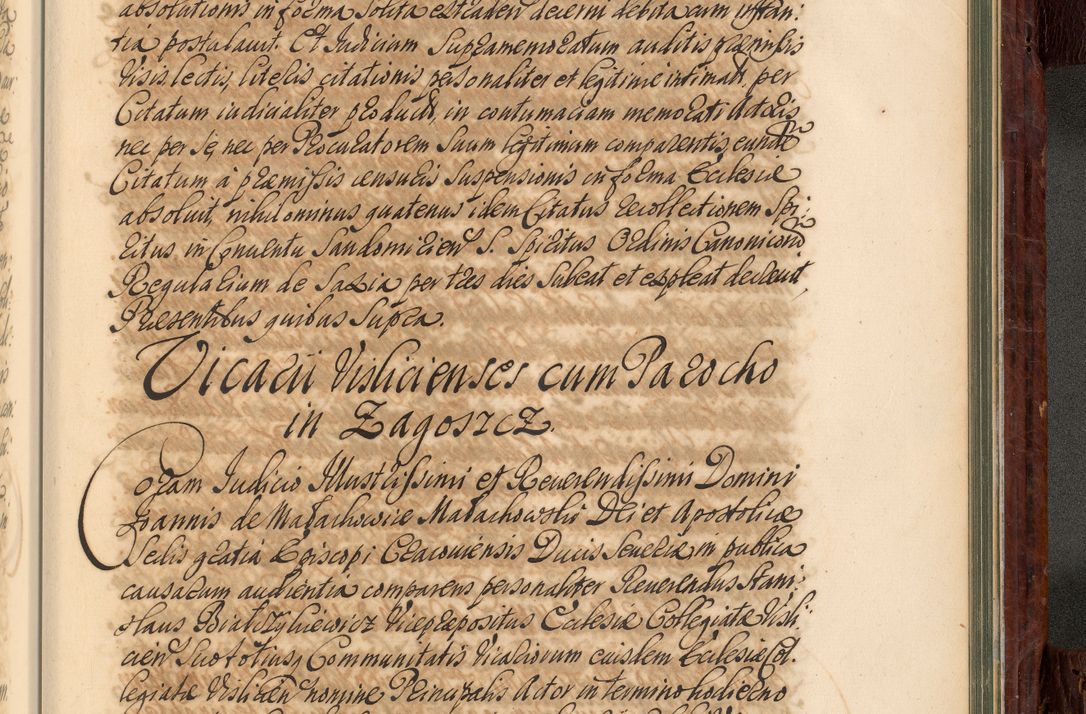 absolutionis in forma solita extraden decerni debita cum instan:
tia postulavit. Et Judicium Supramemoratum auditis præmissis
visis lectis, literis citationis, personaliter et legitime intimatis per
Citatum iudicialiter productis, in contumaciam memorati Actoris
nec per se, nec per Procuratorem suum legitimum comparentis, eundē
Citatum à præmissis censuris suspensionis in forma Ecclesiæ
absoluit, nihilominus quatenus idem Citatus recollectionem Spi:
ritus in Conventu Sandomirien S. Spiritus Ordinis Canonicorū
Regularium de Saxia per tres dies subeat et expleat decrevit,
Præsentibus quibus supra.
Vicarii Vislicienses cum Parocho
in Zagoszcz.
Coram Judicio Illustrissimi et Reverendissimi Domini
Joannis de Małachowice Małachowski Dei et Apostolicæ
Sedis gratia Episcopi Cracoviensis Ducis Severiæ in publica
causarum audientia comparens personaliter Reverendus Stani:
slaus Białczykiewicz Vicepræpositus Ecclesiæ Collegiatæ Visli:
cien Suo totiusq Communitatis Vicariorum eiusdem Ecclesiæ Col:
legiatæ Vislicen nomine Principalis Actor in termino hodierno